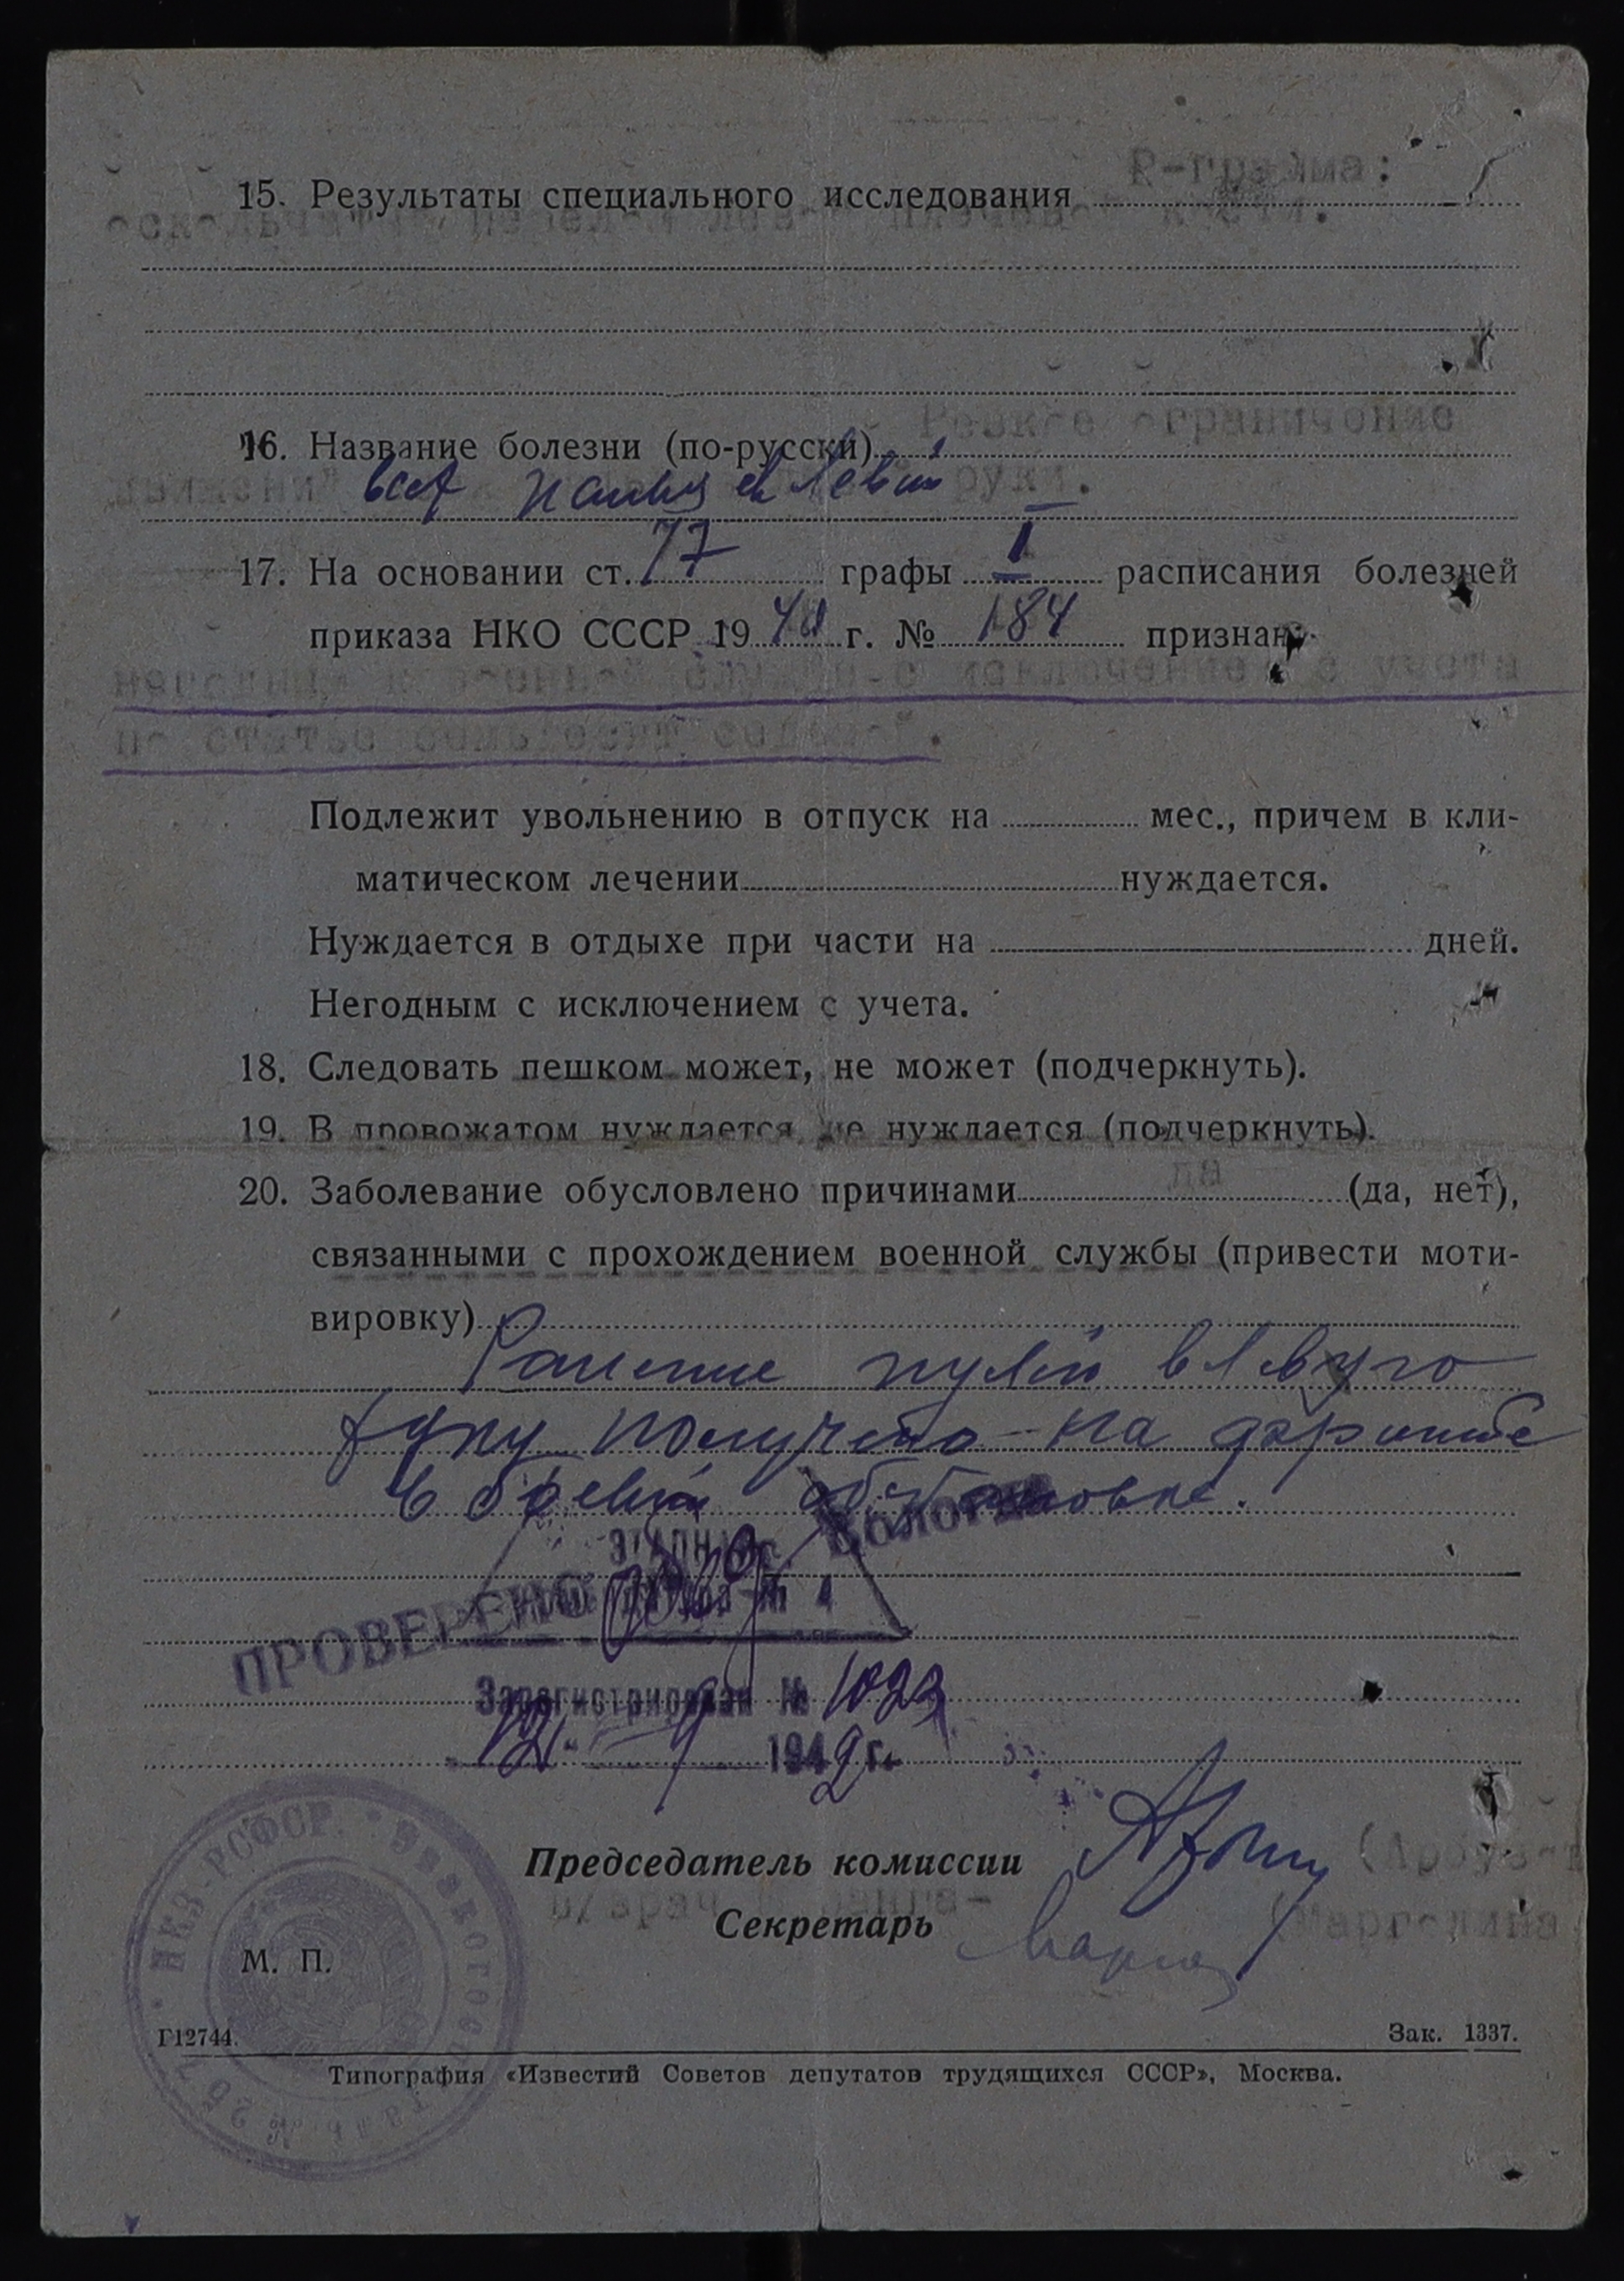 R-грамма:
15. Результаты специального исследования
оскольчатый перелом левой плечевой кости.
Резкое ограничение
16. Название болезни (по-русски)
движений всех пальцев левой руки.
17. На основании ст. 77 графы I расписания болезней
приказа НКО СССР 1940 г. № 184 признан:
негодным к военной службе с исключением с учета
по статье семьдесят седьмой".
Подлежит увольнению в отпуск на мес., причем в кли-
матическом лечении нуждается.
Нуждается в отдыхе при части на дней.
Негодным с исключением с учета.
18. Следовать пешком может, не может (подчеркнуть).
19. В провожатом нуждается, не нуждается (подчеркнуть).
20. Заболевание обусловлено причинами да (да, нет),
связанными с прохождением военной службы (привести моти-
вировку)
Ранение пулей в левую
руку получено на фронте
в боевой обстановке.
ПРОВЕРЕНО
г. Вологда
Зарегистрирован № 1023
12 1942 г.
Председатель комиссии
Секретарь (Марголина
М. П.
НКЗ-РСФСР
Г12744. Зак. 1337.
Типография «Известий Советов депутатов трудящихся СССР», Москва.